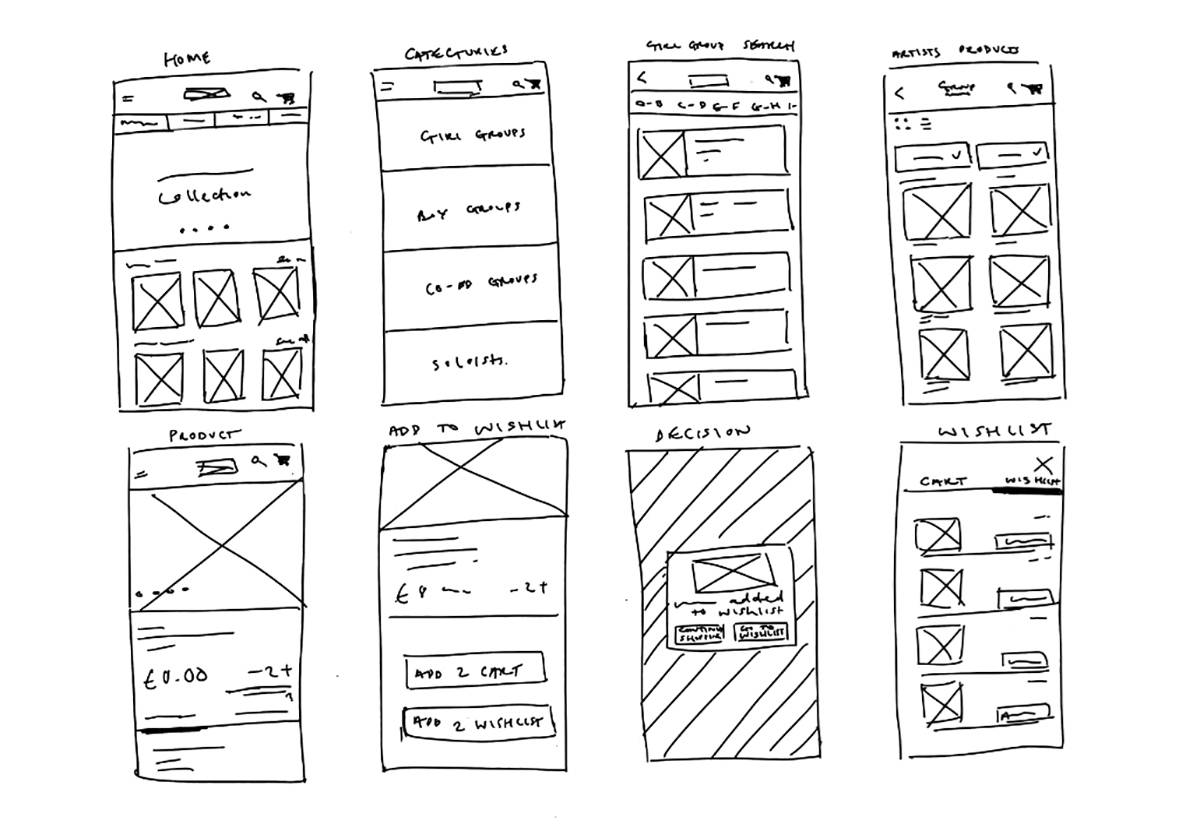 HOME
Collection
CATEGORIES
GIRL GROUPS
BOY GROUPS
CO-ED GROUPS
SOLOISTS.
GIRL GROUP SEARCH
A-B C-D E-F G-H I-
ARTISTS PRODUCTS
GROUP
PRODUCT
£0.00 -2+
ADD TO WISHLIST
-2+
ADD 2 CART
ADD 2 WISHLIST
DECISION
added
to wishlist
CONTINUE
SHOPPING
GO TO
WISHLIST
WISHLIST
CART WISHLIST